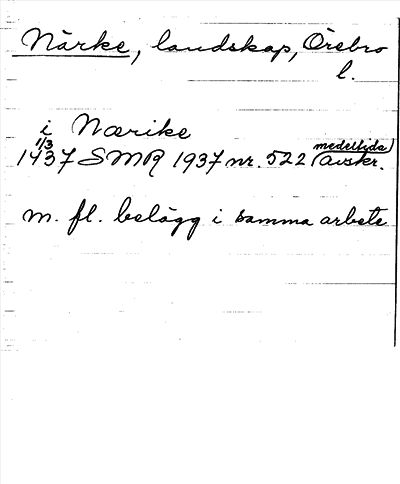 Närke, landskap, Örebro
l.
i Nærike
1/3
1437 SMR 1937 nr. 522 (medeltida avskr.
m. fl. belägg i samma arbete